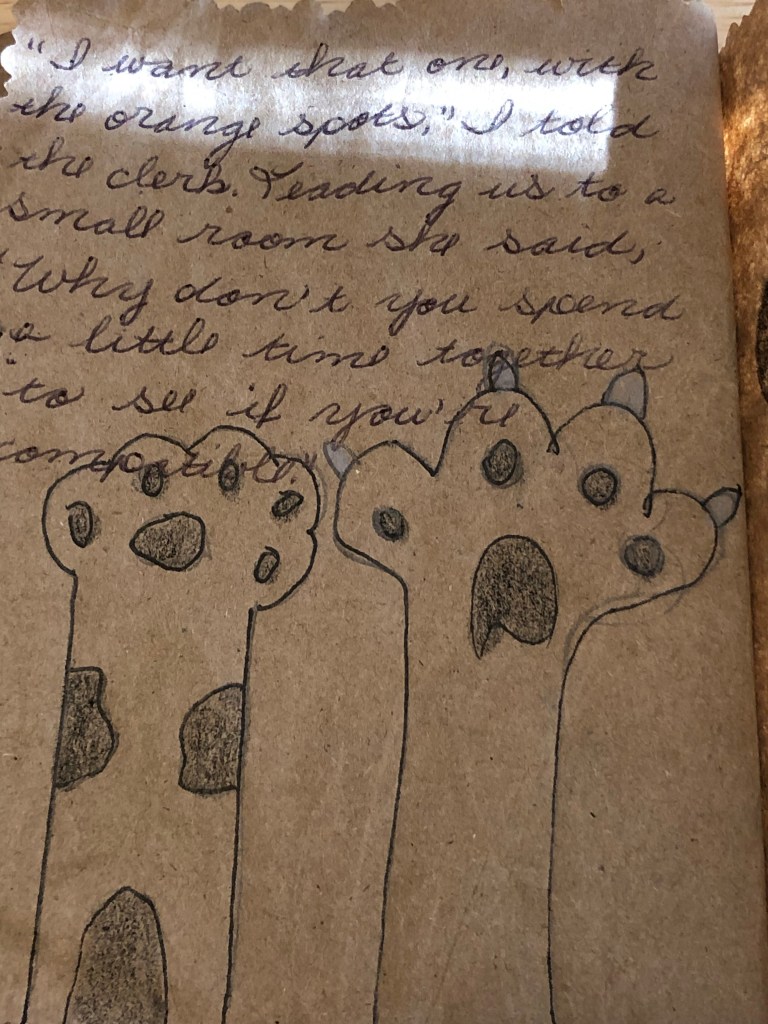 "I want that one, with
the orange spots," I told
the clerk. Leading us to a
small room she said,
"Why don't you spend
a little time together
to see if you're
compatible."